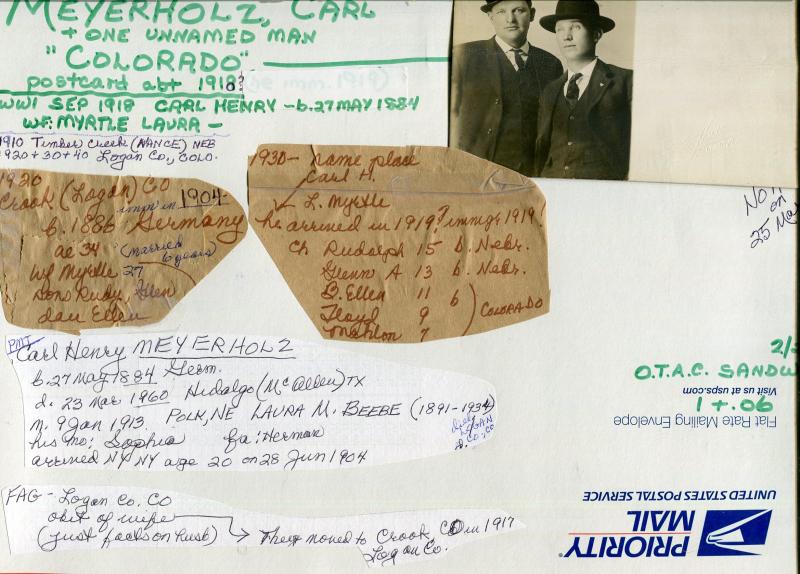 MEYERHOLZ, CARL
+ ONE UNNAMED MAN
"COLORADO"
postcard abt 1918?
WW1 SEP 1918 CARL HENRY - b. 27 MAY 1884
WF. MYRTLE LAURA -
1910 Timber Creek (NANCE) NEB
1920 + 30 + 40 Logan Co., COLO.
1920
Crook (Logan) CO
immi in 1904
b. 1886 Germany
ae 34 (married 6 years)
wf Myrtle 27
sons Rudy, Glen
dau Ellen
1930 - same place
Carl H.
L. Myrtle
he arrived in 1919? immigr 1919!
Ch Rudolph 15 b. Nebr.
Glenn A 13 b. Nebr.
B. Ellen 11 b
Floyd 9 COLORADO
Mahlon 7
PMT
Carl Henry MEYERHOLZ
b. 27 May 1884 Germ.
d. 23 Mar 1960 Hidalgo (McAllen) TX
m. 9 Jan 1913 POLK, NE LAURA M. BEEBE (1891-1934)
his mo: Sophia fa: Herman
arrived NY NY age 20 on 28 Jun 1904
FAG - Logan Co. CO
obit of wife
(just facts on husb) → They moved to Crook, CO in 1917
Logan Co.
25 Mar
O.T.A.C. SANDW
90 + 1
Visit us at usps.com
Flat Rate Mailing Envelope
UNITED STATES POSTAL SERVICE
PRIORITY
MAIL